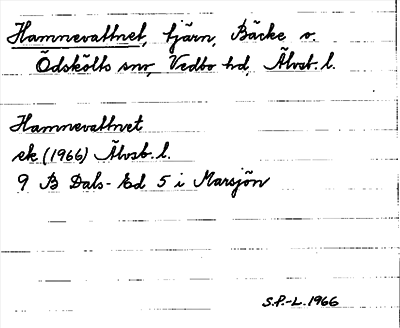 Hamnevattnet, tjärn, Bäcke o.
Ödskölts snr, Vedbo hd, Älvsb. l.
Hamnevattnet
ek (1966) Älvsb. l.
9 B Dals-Ed 5 i Marsjön
S.P.-L. 1966